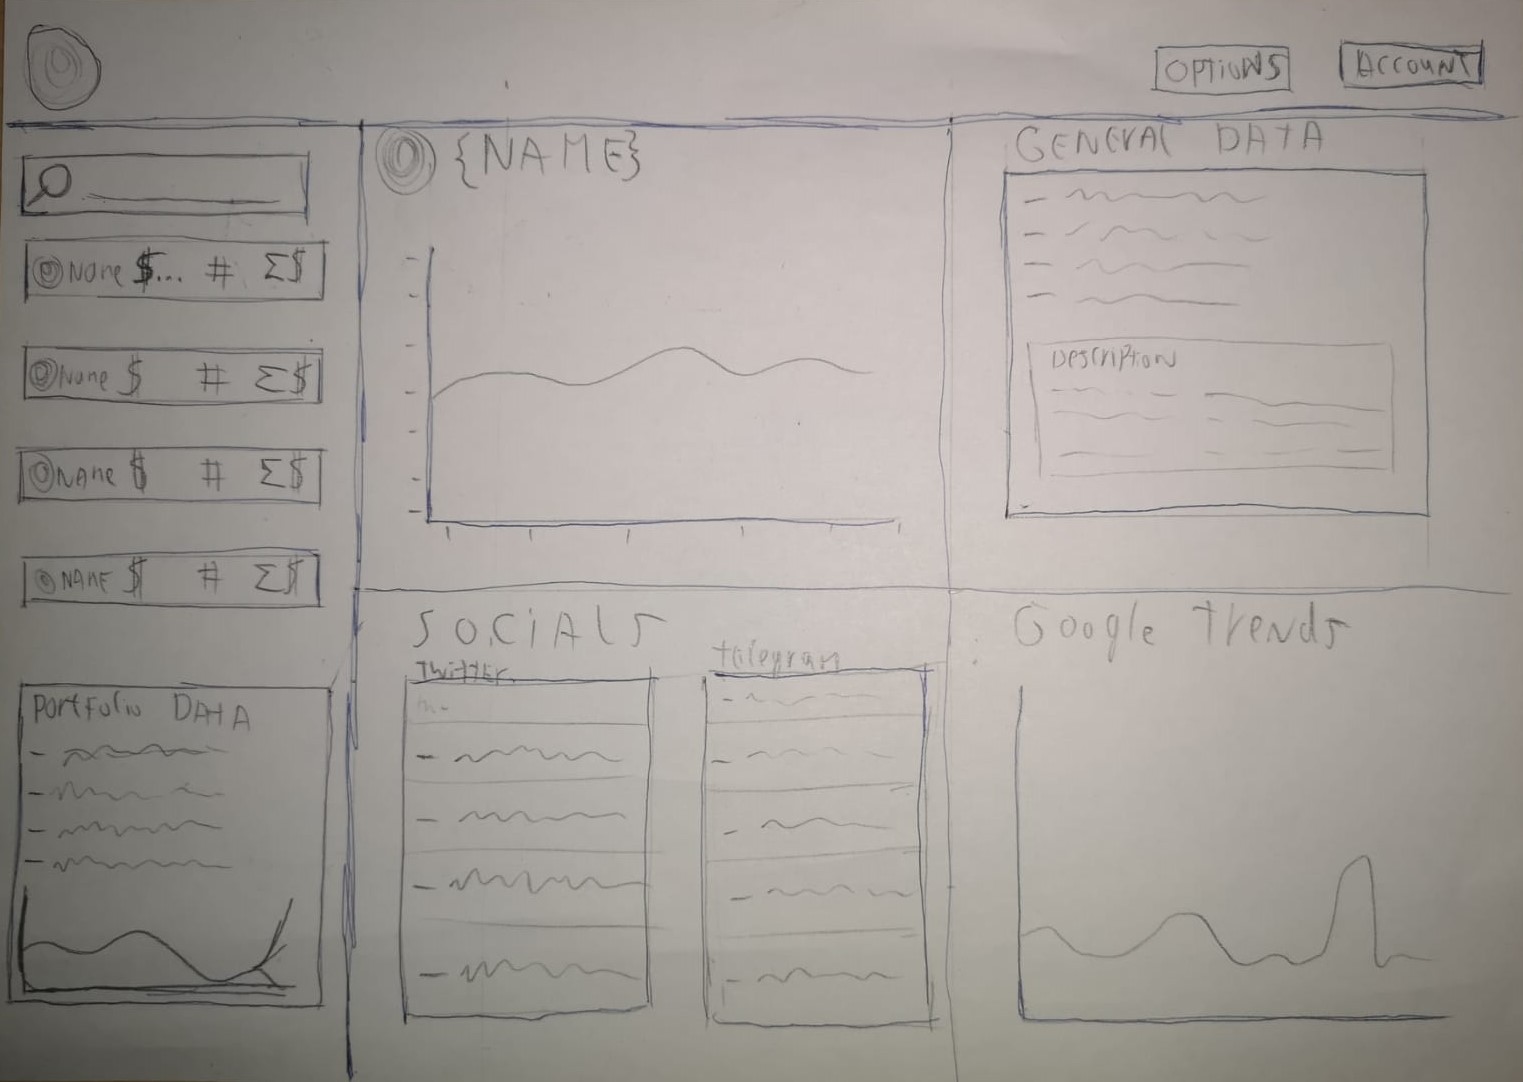 OPTIONS
ACCOUNT
Name $... # Σ$
Name $ # Σ$
NAme $ # Σ$
NAME $ # Σ$
Portfolio DATA
{NAME}
GENERAl DATA
Description
SOCiAlS
TwiTTEr
telegram
Google Trends